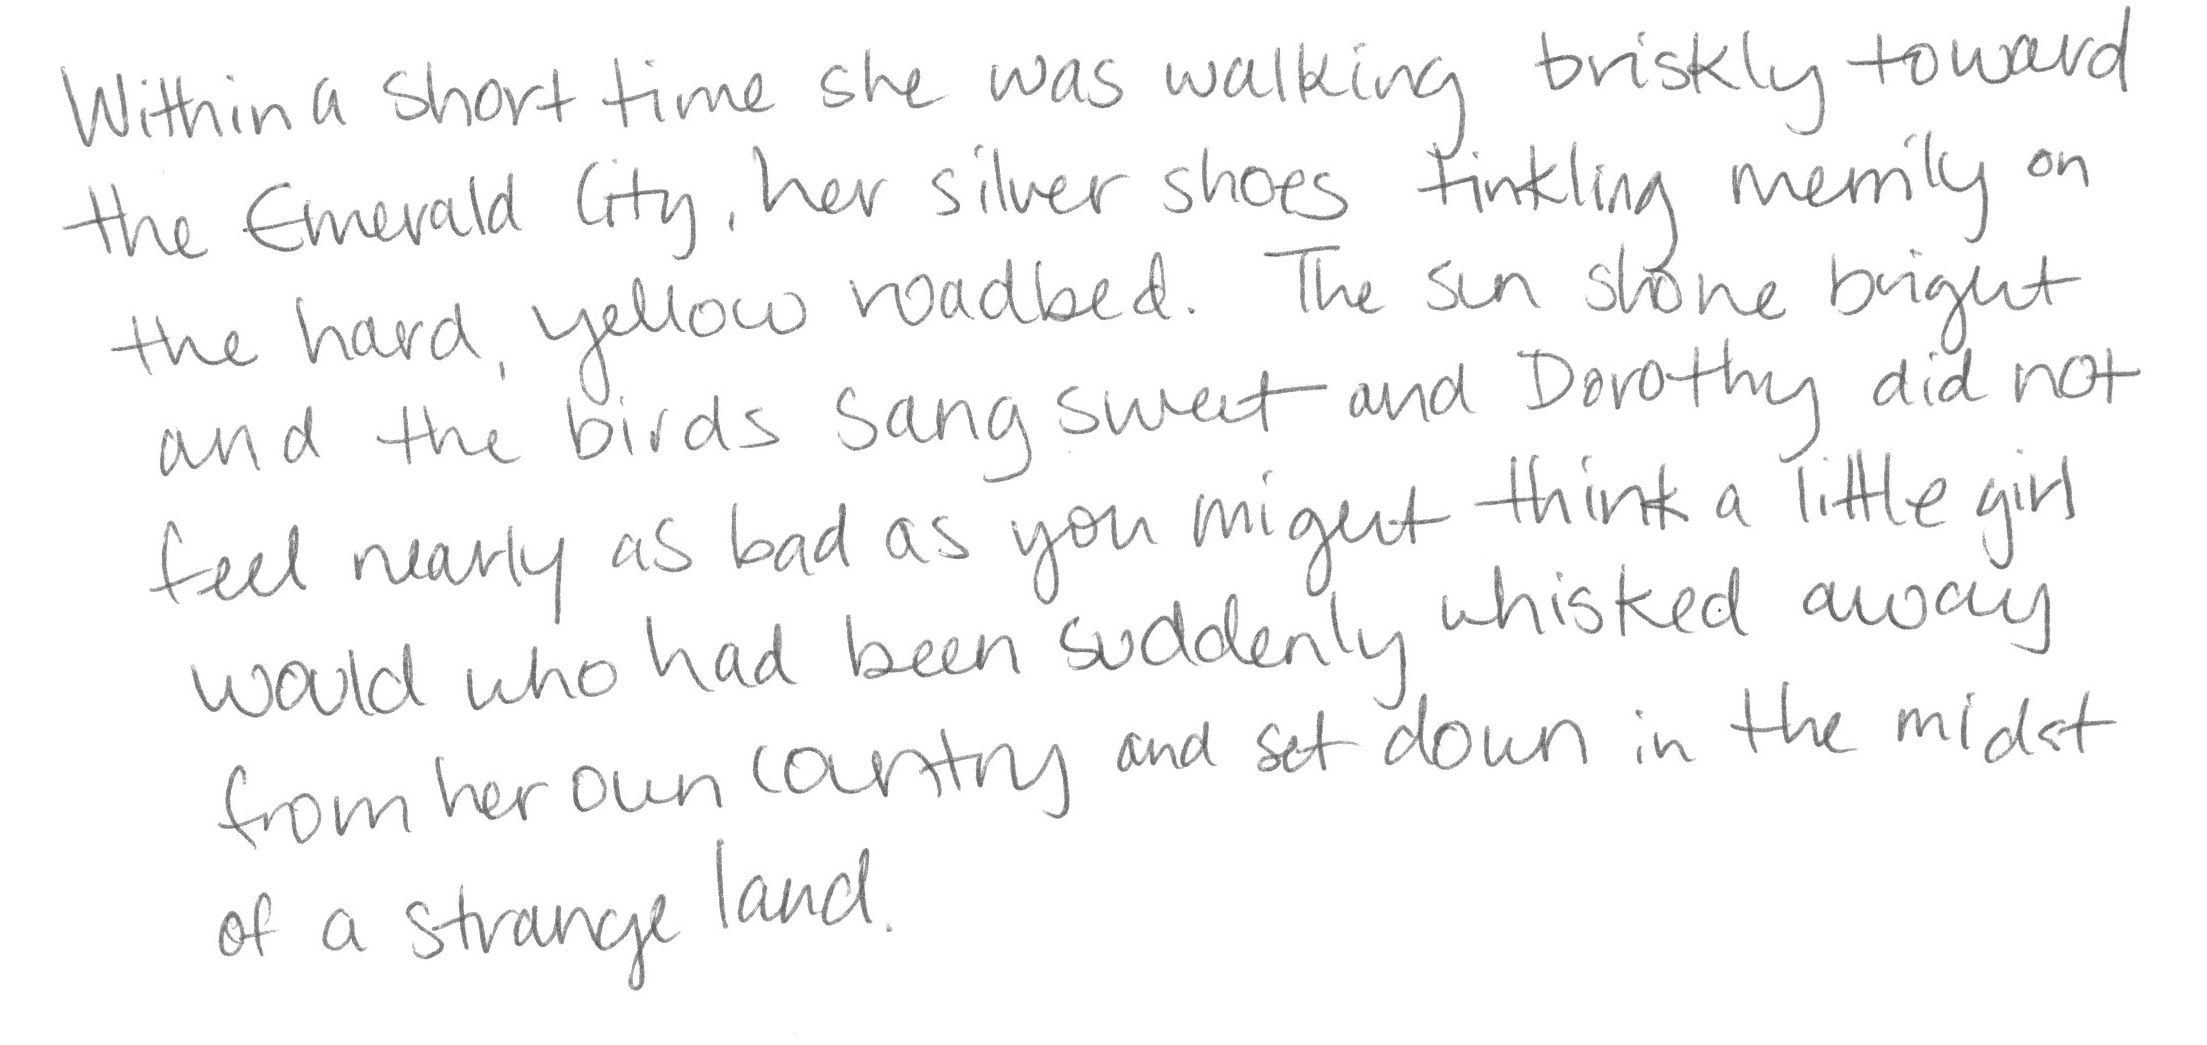 Within a short time she was walking briskly toward
the Emerald City, her silver shoes tinkling merrily on
the hard, yellow roadbed. The sun shone bright
and the birds sang sweet and Dorothy did not
feel nearly as bad as you might think a little girl
would who had been suddenly whisked away
from her own country and set down in the midst
of a strange land.